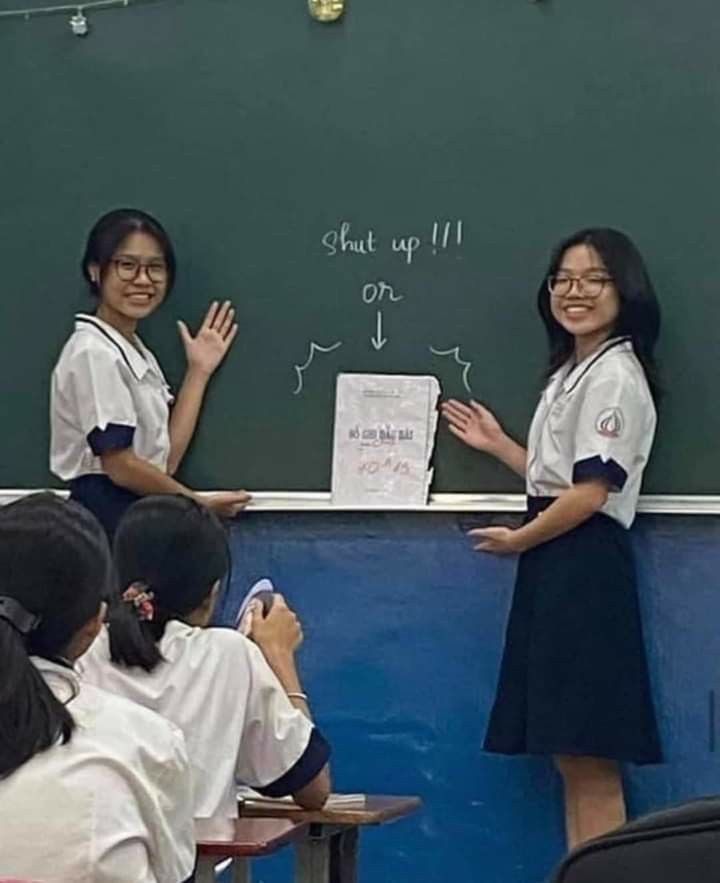 Shut up !!!
or
SỔ GHI ĐẦU BÀI
10A15